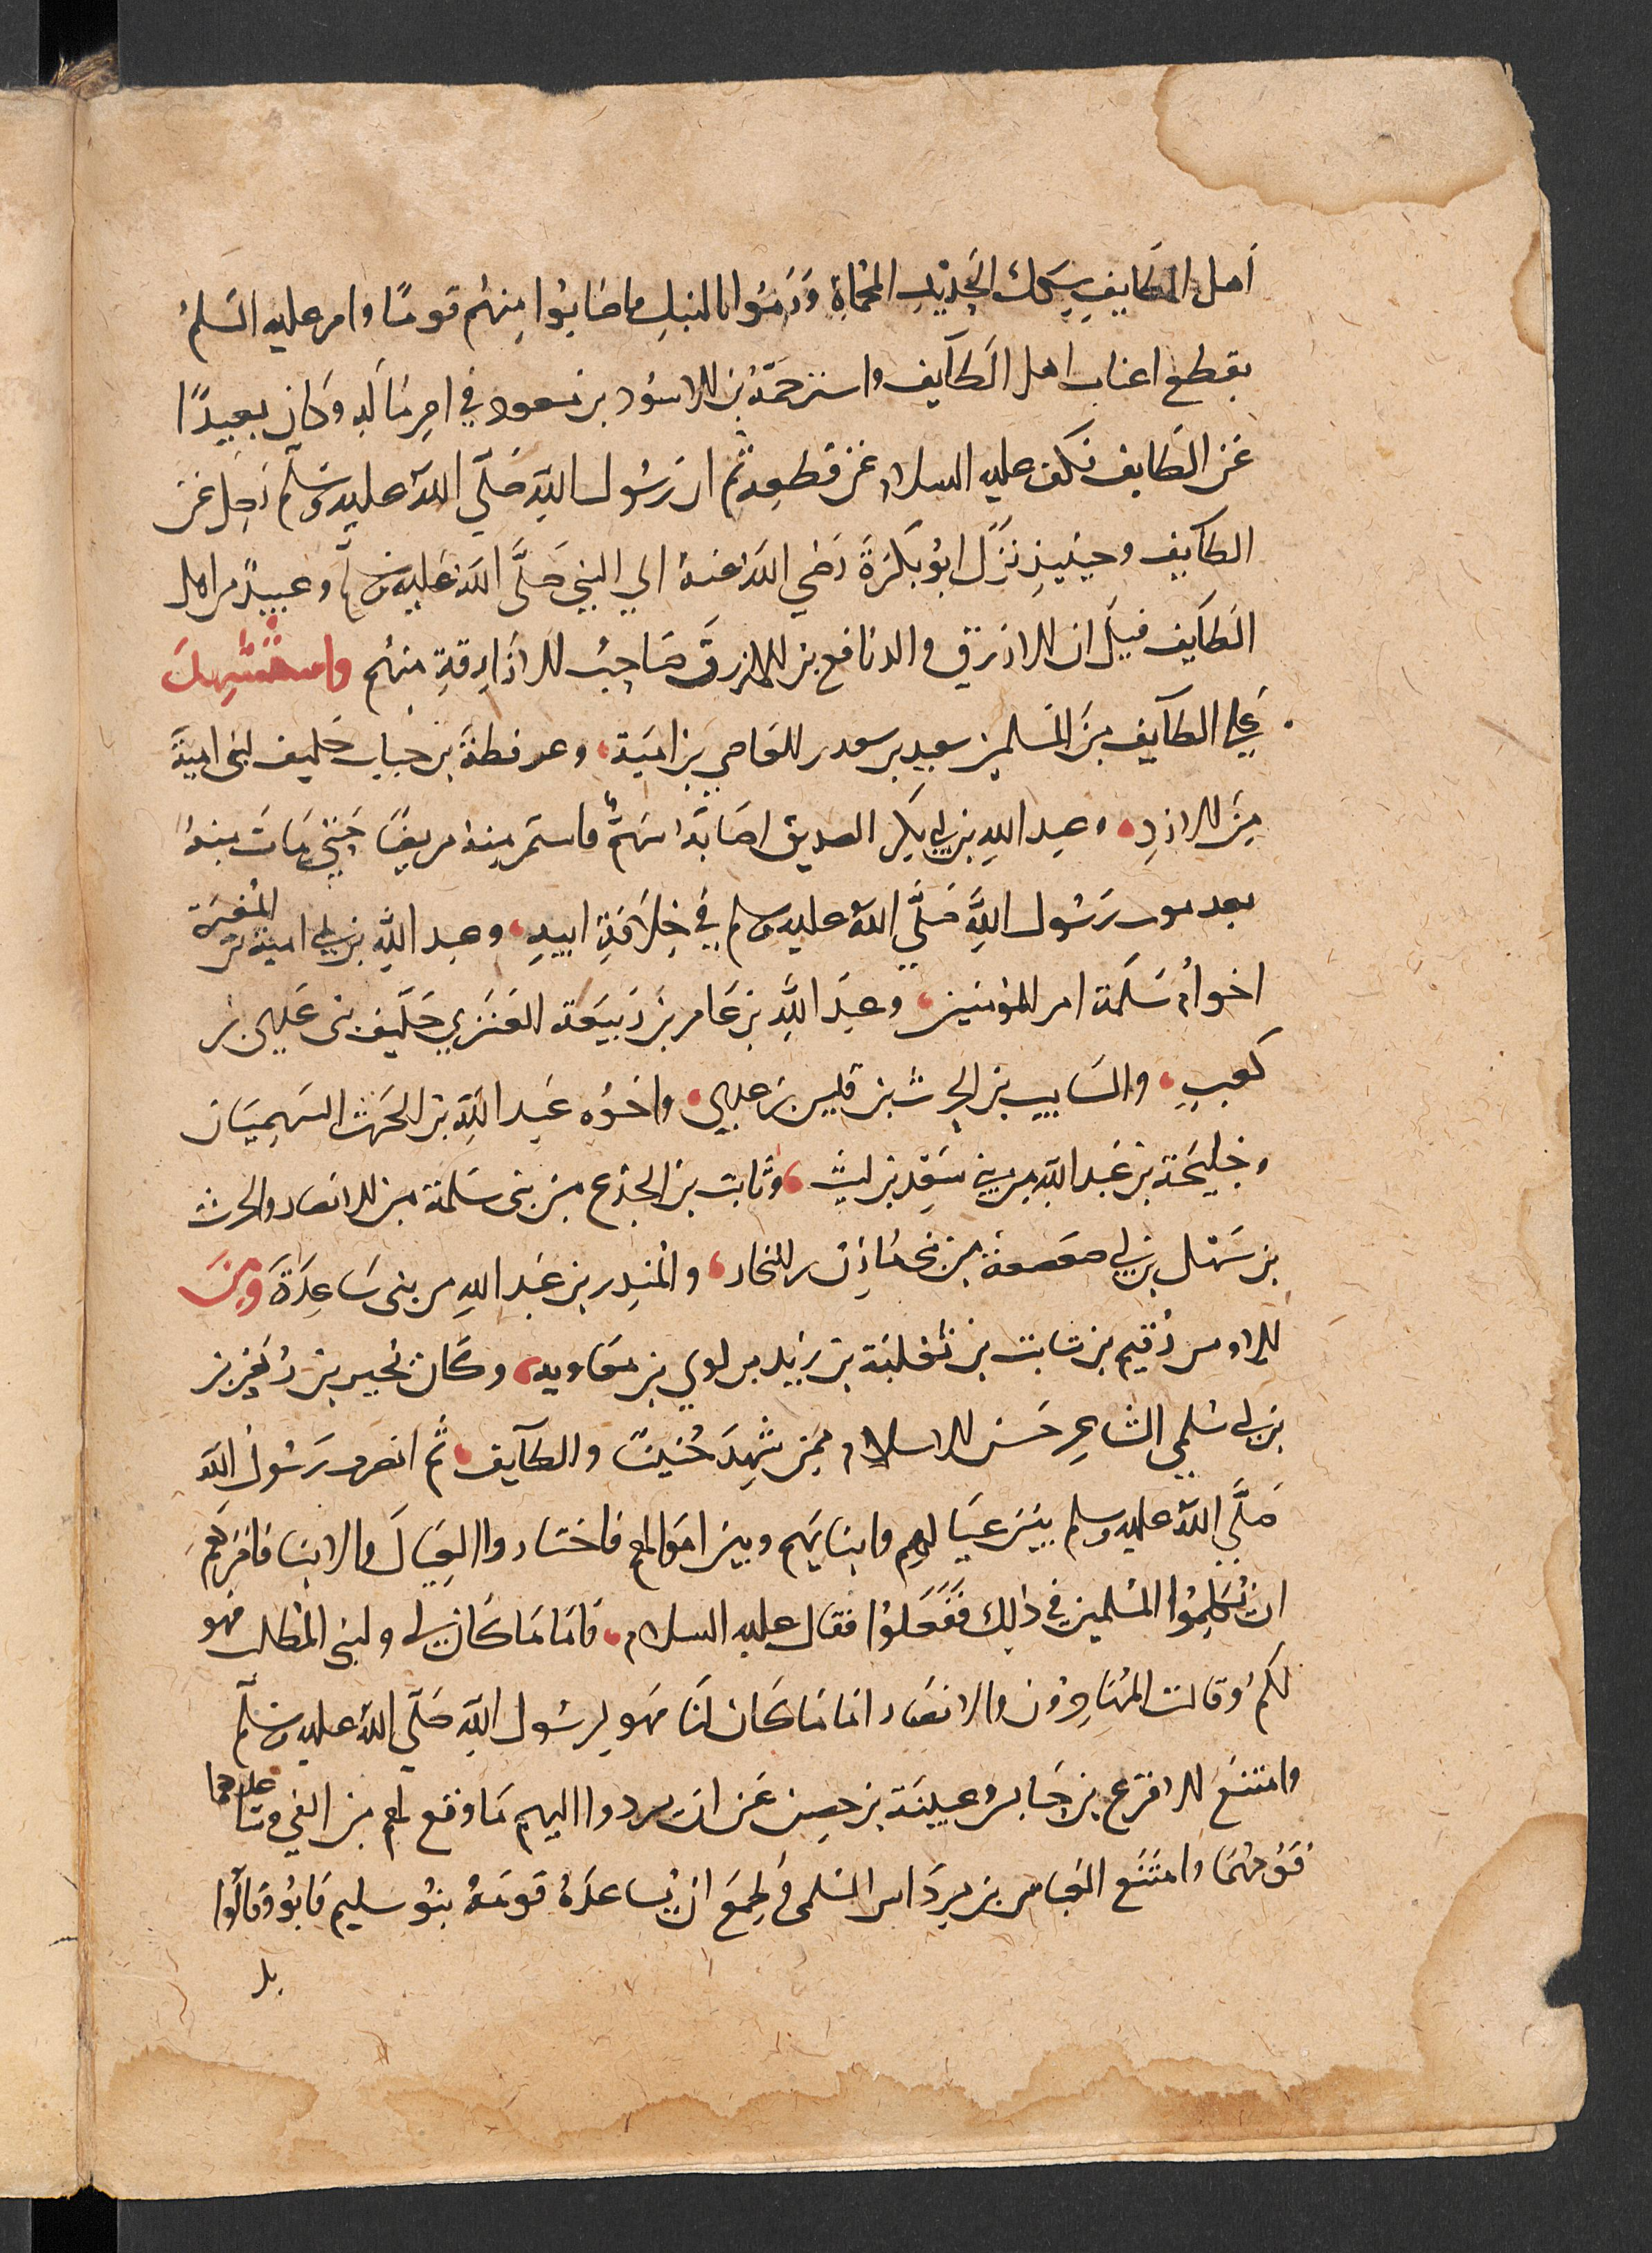 أهل الطايف بسكك الحديد المحماة ورموا بالنبل فاصابوا منهم قومًا وامر عليه السلم
بقطع اعناب اهل الطآيف واسترحمه بن الاسود بن مسعود في امر ماله وكان بعيدًا
عن الطايف فكف عليه السلام عن قطعه ثم ان رسول الله صلّى الله عليه وسلم رحل عن
الطآيف وحينيذ نزل ابو بكرة رضي الله عنه الي النبي صلّى الله عليه وسلم وعبيد من اهل
الطآيف قيل ان الازرق والد نافع بن الازرق صاحب الازارقة منهم واستشهد
علي الطآيف من المسلمين سعيد بن سعد بن العاصي بن امية، وعرفطة بن حباب حليف لبنى امية
من الازد، وعبد الله بن ابي بكر الصديق اصابه سهم فاستمر منه مريضًا حتي مات منه
بعد موت رسول الله صلّى الله عليه وسلم في خلافة ابيه، وعبد الله بن ابي امية بن المغيرة
اخو ام سلمة ام المؤمنين، وعبد الله بن عامر بن ربيعة العنزي حليف بنى عدي بن
كعب، والسايب بن الحرث بن قيس بن عدي، واخوه عبد الله بن الحرث السهميان
وجليحة بن عبد الله من بنى سعد بن ليث، وثابت بن الجذع من بنى سلمة من الانصار والحرث
بن سهل بن ابي صعصعة من بنى مازن بن النجار، والمنذر بن عبد الله من بنى ساعدة ومن
الاوس رقيم بن ثابت بن ثعلبة بن زيد بن لوي بن معاويه، وكان بجير بن زهير بن
بن ابي سلمي الشاعر حسن الاسلام ممن شهد حنينًا والطآيف، ثم انصرف رسول الله
صلّى الله عليه وسلم بين عيالهم وابنايهم وبين اموالهم فاختاروا العيال والابنا فامرهم
ان يكلموا المسلمين في ذلك ففعلوا فقال عليه السلام، فاما ما كان لي ولبني المطلب فهو
لكم وقالت المهاجرون والانصار اما ما كان لنا فهو لرسول الله صلّى الله عليه وسلّم
وامتنع الاقرع بن حابس وعيينة بن حصن عن ان يردوا اليهم ما وقع لهم من الفي وساعدهما
قومهما وامتنع العباس بن مرداس السلمى وطمع ان يساعده قومه بنو سليم فابو وقالوا
بل